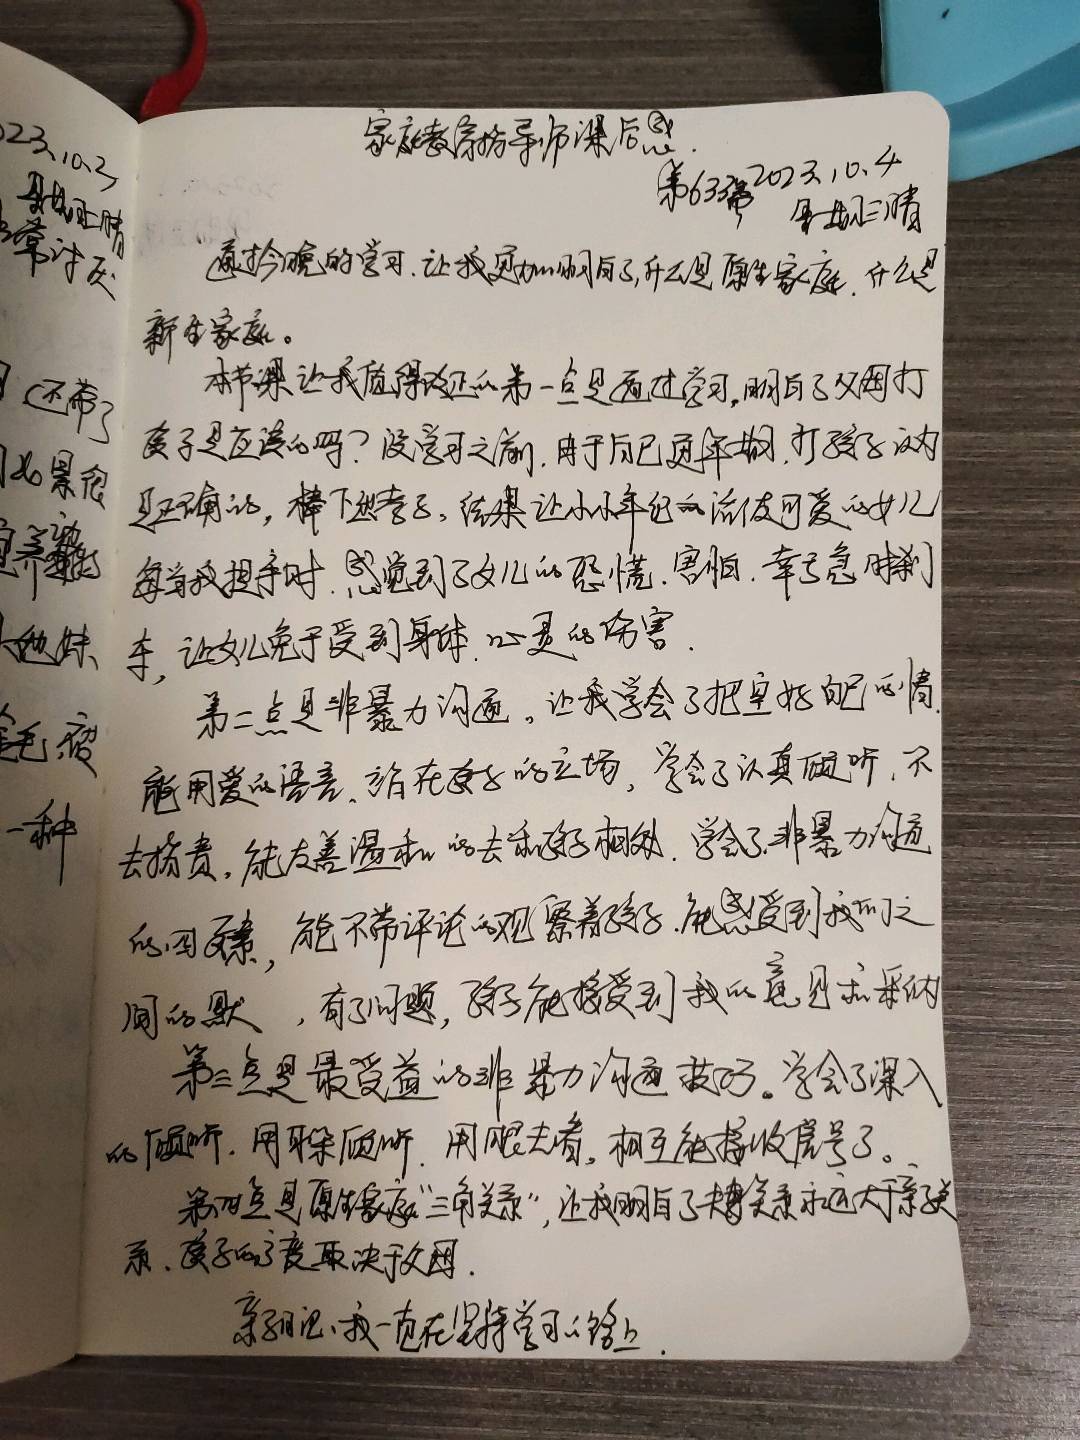 023.10.3
晴
常讨厌
还带了
如果很
他妹
一种
家庭教育指导师课后感.
第633篇 2023.10.4
星期三晴
通过今晚的学习.让我更加明白了,什么是原生家庭.什么是
新生家庭。
本节课让我值得改正的第一点是通过学习,明白了父母打
孩子是应该的吗?没学习之前.由于自己更年期.打孩子认为
是正确的,棒下出孝子.结果让小小年纪的活泼可爱的女儿
每当我抬手时.感觉到了女儿的恐慌.害怕.幸亏急时刹
车,让女儿免于受到身体.心灵的伤害.
第二点是非暴力沟通。让我学会了把握好自己的情.
能用爱的语言.站在孩子的立场,学会了认真倾听.不
去指责,能友善温和的去和孩子相处.学会了非暴力沟通
的四要素,能不带评论的观察着孩子.能感受到我们之
间的默,有了问题,孩子能接受到我的意见和采纳
第三点是最受益的非暴力沟通技巧。学会了深入
的倾听.用耳朵倾听.用眼去看,相互能接收信号了。
第四点是原生家庭"三角关系",让我明白了夫妻关系永远大于亲子关
系.孩子的改变取决于父母.
亲子日记.我一直在坚持学习的路上.